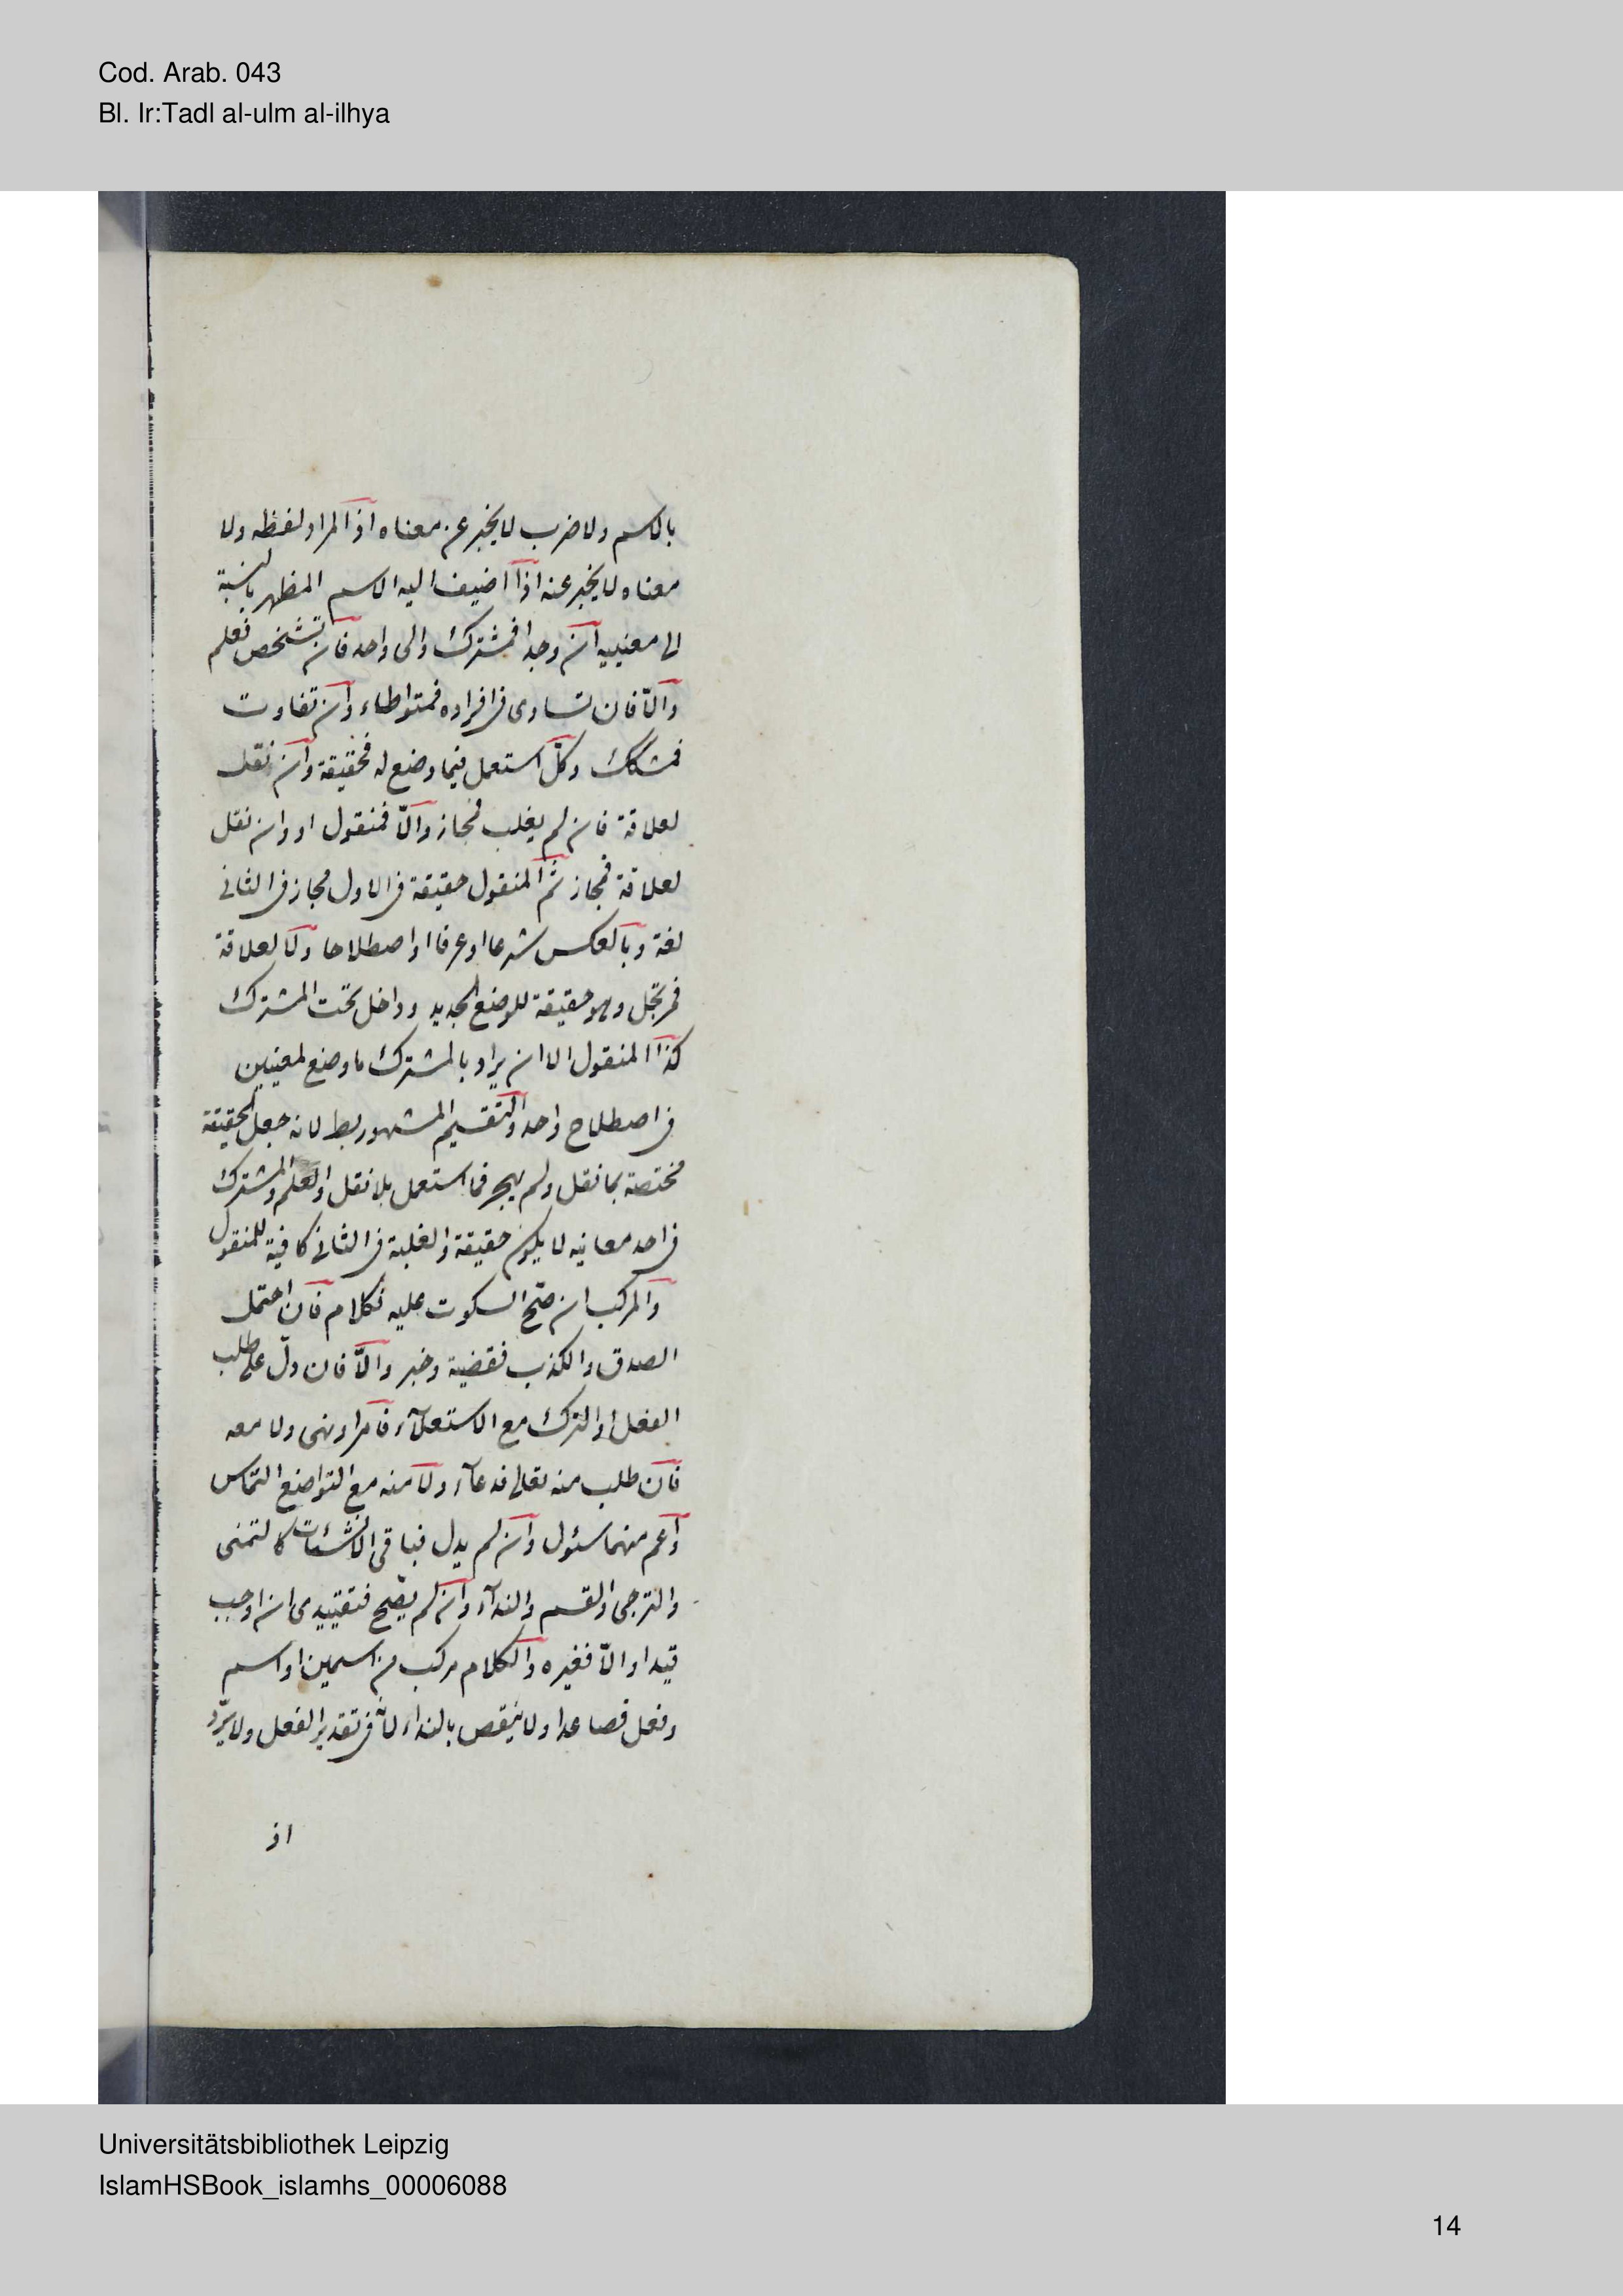 Cod. Arab. 043
Bl. Ir:Tadl al-ulm al-ilhya
بالاسم ولا ضرب لا يخبر عن معناه اذ المراد لفظه ولا
معناه لا يخبر عنه اذا اضيف اليه الاسم المظهر بالنسبة
الى معنييه ان وجدا فمشترك والى واحد فان تشخص فعلم
والّا فان تساوى فى افراده فمتواطاء وان تفاوت
فمشكك وكلّ استعمل فيما وضع له فحقيقة وان نقل
لعلاقة فان لم يغلب فمجاز والّا فمنقول او وان نقل
لعلاقة فمجاز ثمّ المنقول حقيقة فى الاول مجاز فى الثانى
لغة وبالعكس شرعا او عرفا او اصطلاحا ولا لعلاقة
فمرتجل وهو حقيقة للوضع الجديد وداخل تحت المشترك
كذا المنقول الا ان يراد بالمشترك ما وضع لمعنيين
فى اصطلاح واحد والتقسيم المشهور بط لانه جعل الحقيقة
مختصة بما نقل ولم يهجر فما استعمل بلا نقل والعلم والمشترك
فى احد معانيه لا يكون حقيقة والغلبة فى الثانى كافية للمنقول
والمركب ان صحّ السكوت عليه فكلام فان احتمل
الصدق والكذب فقضية وخبر والّا فان دلّ على طلب
الفعل او الترك مع الاستعلآء فامر او نهى ولا معه
فان طلب منه تعالى فدعآء ولا منه مع التواضع التماس
واعم منهما سئول وان لم يدل فباقى الانشئات كالتمنى
والترجى والقسم والندآء وان لم يصّح فتقييدى ان اوجب
قيدا والّا فغيره والكلام مركب من اسمين او اسم
وفعل فصاعدا ولا ينقص بالنداء لانّه فى تقدير الفعل ولا يرّد
اذ
Universitätsbibliothek Leipzig
IslamHSBook_islamhs_00006088
14